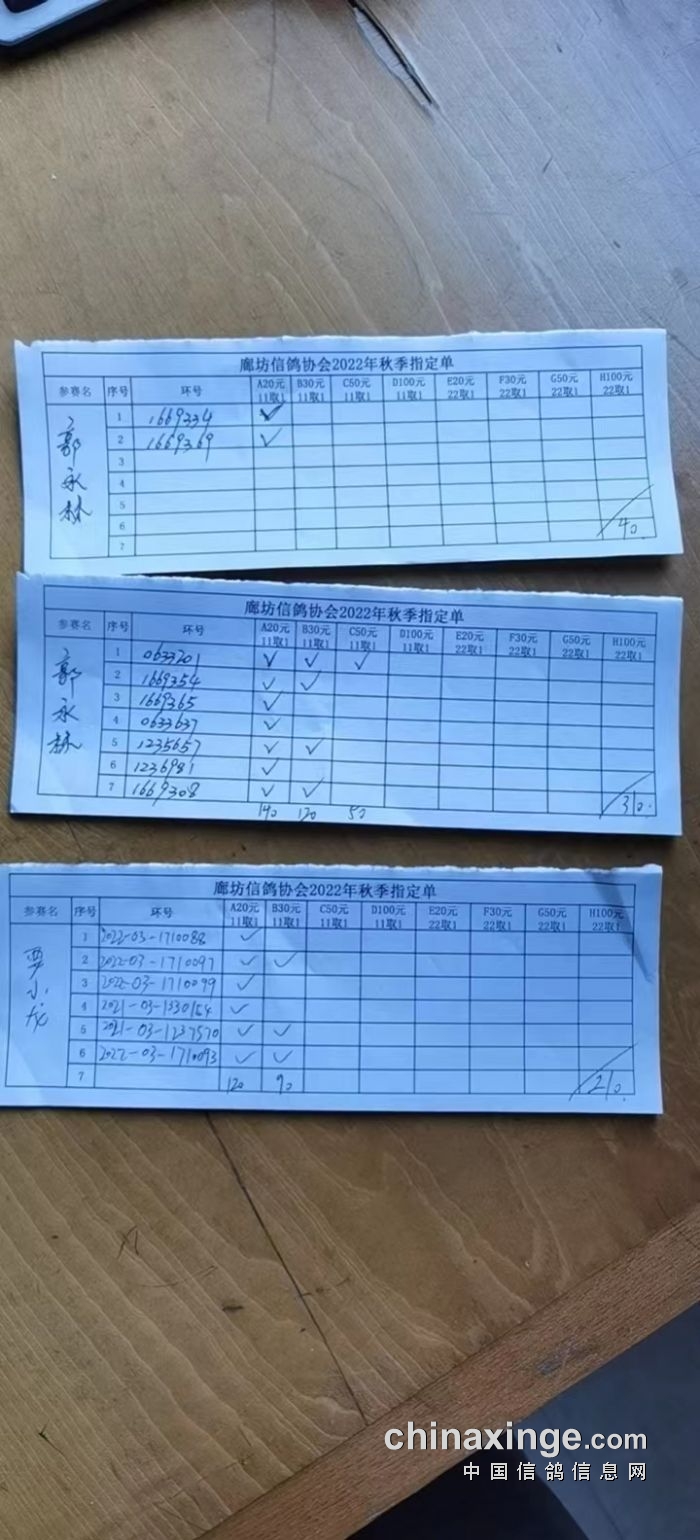 廊坊信鸽协会2022年秋季指定单
参赛名 序号 环号 A20元 11取1 B30元 11取1 C50元 11取1 D100元 11取1 E20元 22取1 F30元 22取1 G50元 22取1 H100元 22取1
郭永林
1 1669334 ✓
2 1669369 ✓
3
4
5
6
7
40.
廊坊信鸽协会2022年秋季指定单
参赛名 序号 环号 A20元 11取1 B30元 11取1 C50元 11取1 D100元 11取1 E20元 22取1 F30元 22取1 G50元 22取1 H100元 22取1
郭永林
1 0633201 ✓ ✓ ✓
2 1669354 ✓ ✓
3 1669365 ✓
4 0633637 ✓
5 1235657 ✓ ✓
6 1236981 ✓
7 1669308 ✓ ✓
310.
140 120 50
廊坊信鸽协会2022年秋季指定单
参赛名 序号 环号 A20元 11取1 B30元 11取1 C50元 11取1 D100元 11取1 E20元 22取1 F30元 22取1 G50元 22取1 H100元 22取1
小龙
1 2022-03-1710088 ✓
2 2022-03-1710097 ✓ ✓
3 2022-03-1710099 ✓
4 2021-03-1330154 ✓
5 2021-03-1237570 ✓ ✓
6 2022-03-1710093 ✓ ✓
7 120 90 210.
chinaxinge.com
中国信鸽信息网